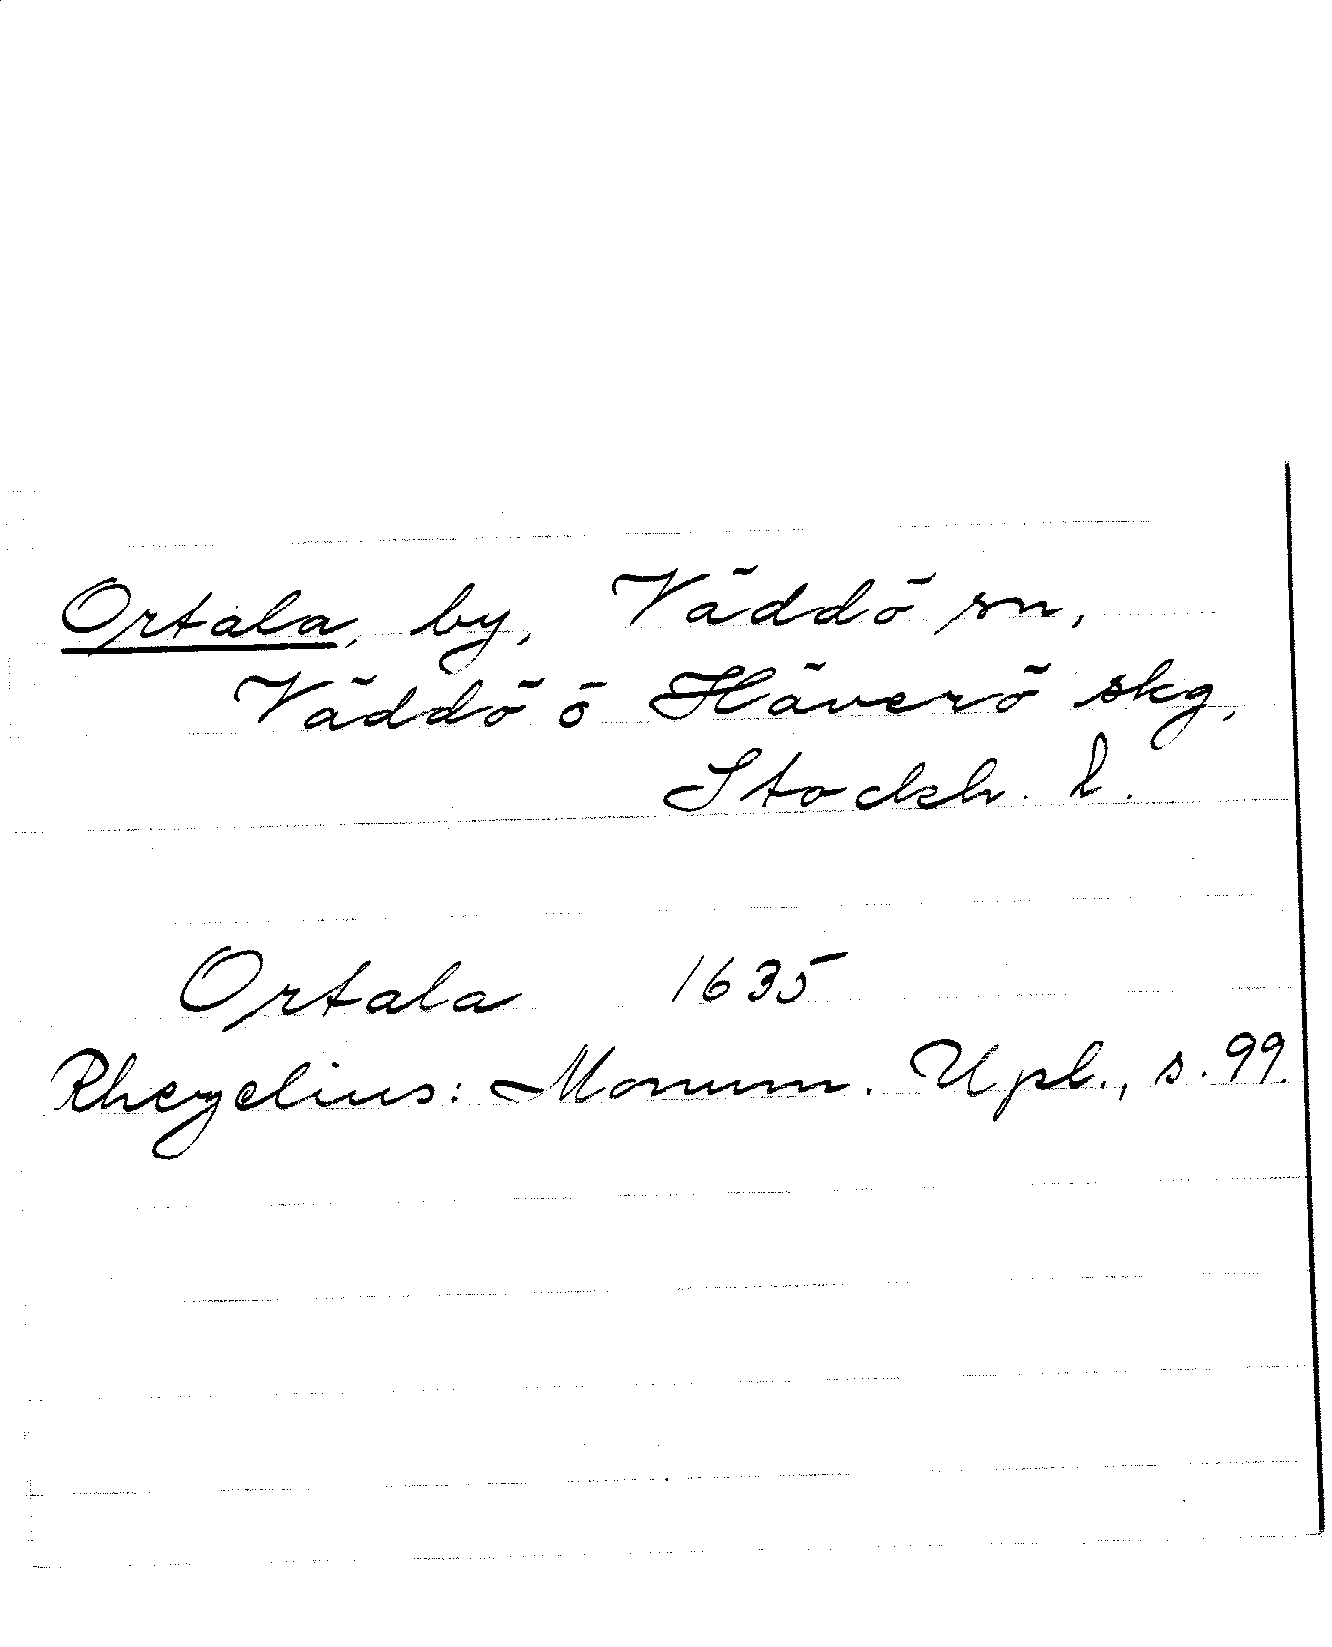 Ortala, by, Väddö sn,
Väddö ö Häverö skg,
Stockh. l.
Ortala 1635
Rhezelius: Monum. Upl., s. 99.